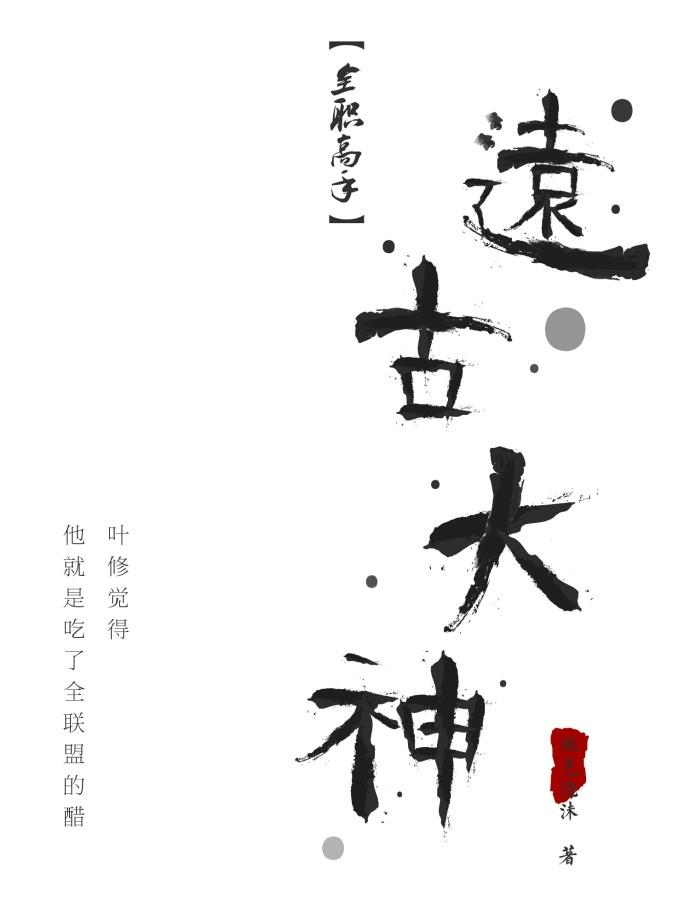 【全职高手】
遠古大神
叶修觉得
他就是吃了全联盟的醋
沫 著